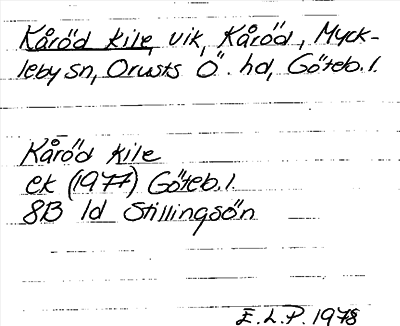 Kåröd kile, vik, Kåröd, Myck-
leby sn, Orusts Ö. hd, Göteb. l.
Kåröd kile
ek (1977) Göteb. l.
8B 1d Stillingsön
E. L. P. 1978